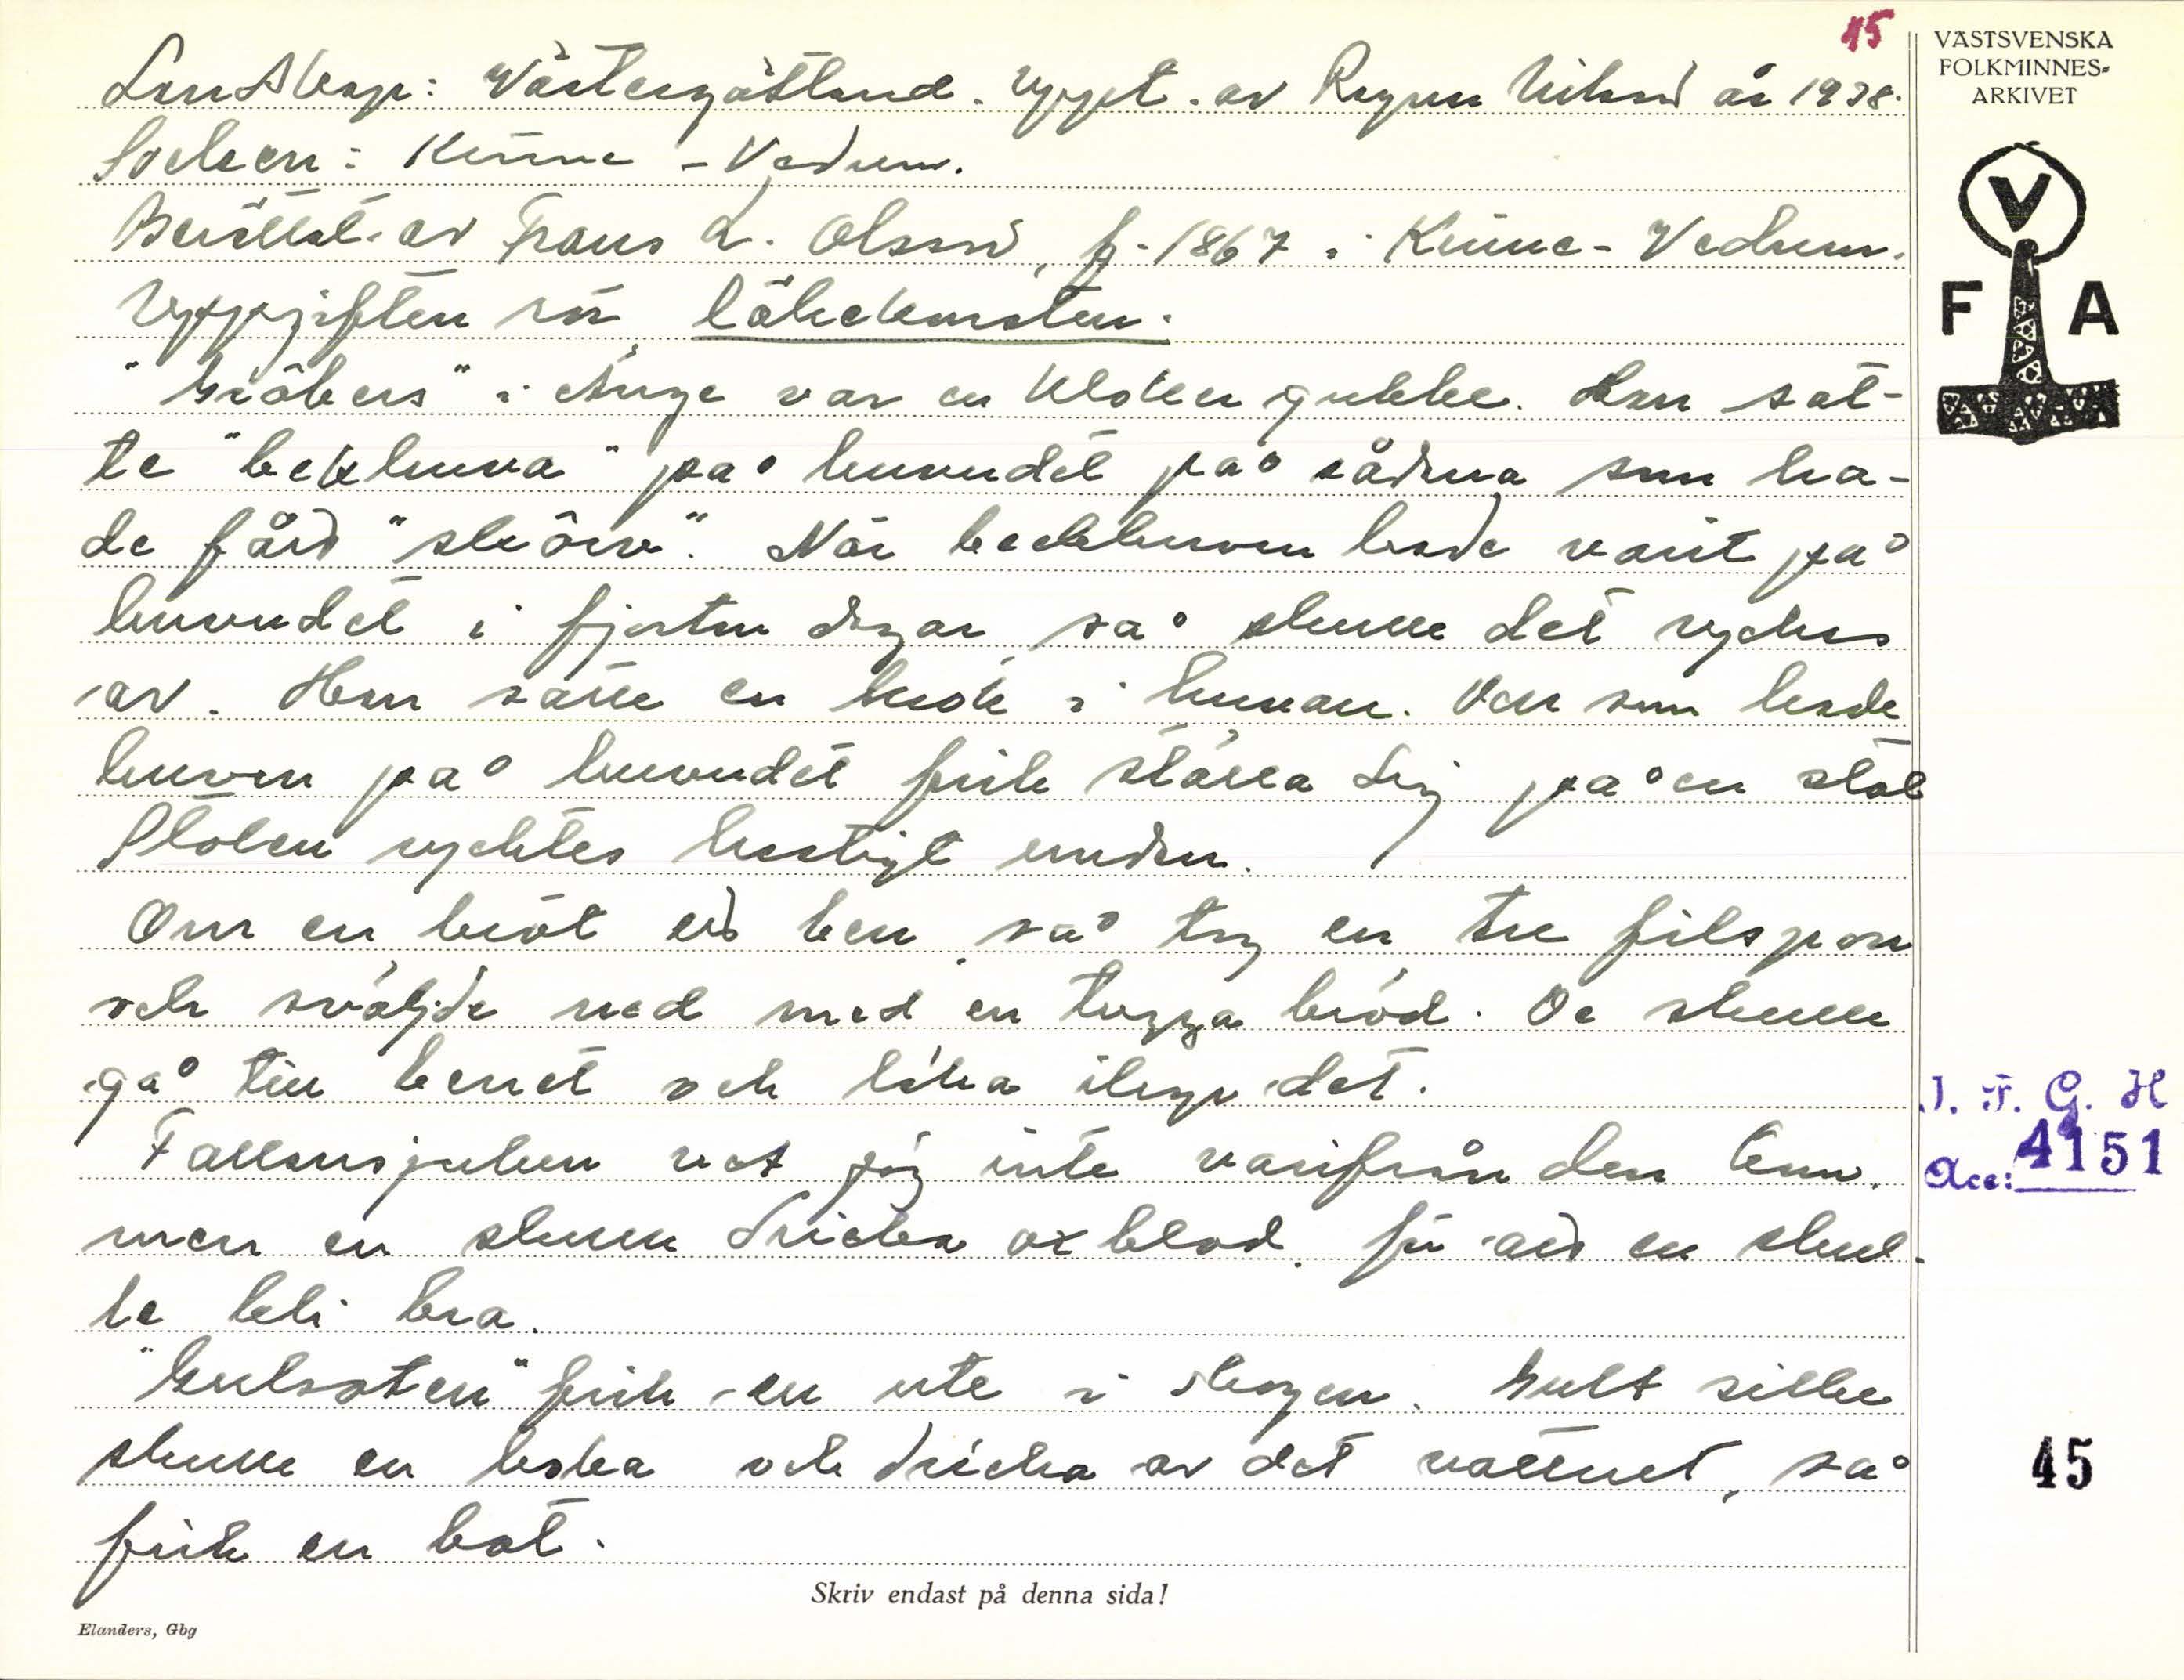 15
Landskap: Västergötland. Uppt. av Ragnar Nilsson år 1938.
Socken: Kinne-Vedum.
Berättat av Frans L. Olsson, f. 1867 i Kinne-Vedum.
Uppgiften rör läkekonsten.
i Änga var en kloker gubbe. Han sat-
te "bekhuva" på huvudet på sådna som ha-
de fått "skörv". När beckhuvan hade varit på
huvudet i fjorton dagar så skulle det ryckas
av. Han satte en krok i huvan. Den som hade
huvan på huvudet fick ställa sig på en stol
Stolen rycktes hastigt undan.
Om en bröt ett ben, så tog en tre filspån
och sväljde ned med en tugga bröd. De skulle
gå till benet och läka ihop det.
Fallansjukan vet jag inte varifrån den kom.
men en skulle dricka oxblod för att en skul-
le bli bra.
"Gulsoten" fick en ute i skogen. Gult silke
skulle en koka och dricka av det vattnet, så
fick en bot.
Skriv endast på denna sida!
Elanders, Gbg
VÄSTSVENSKA
FOLKMINNES-
ARKIVET
V
F A
I. F. G. H
Acc: 4151
45